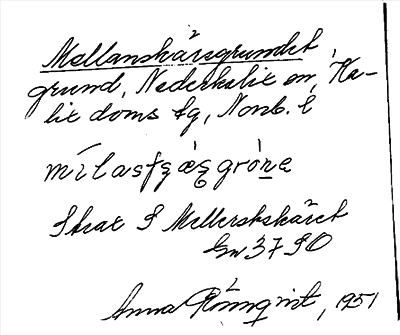 Mellanskärsgrundet
grund, Nederkalix sn, Ka-
lix doms tg, Nonb. l
Strax S Mellerstskäret
Gn 3790
Anna Rönnqvist, 1951